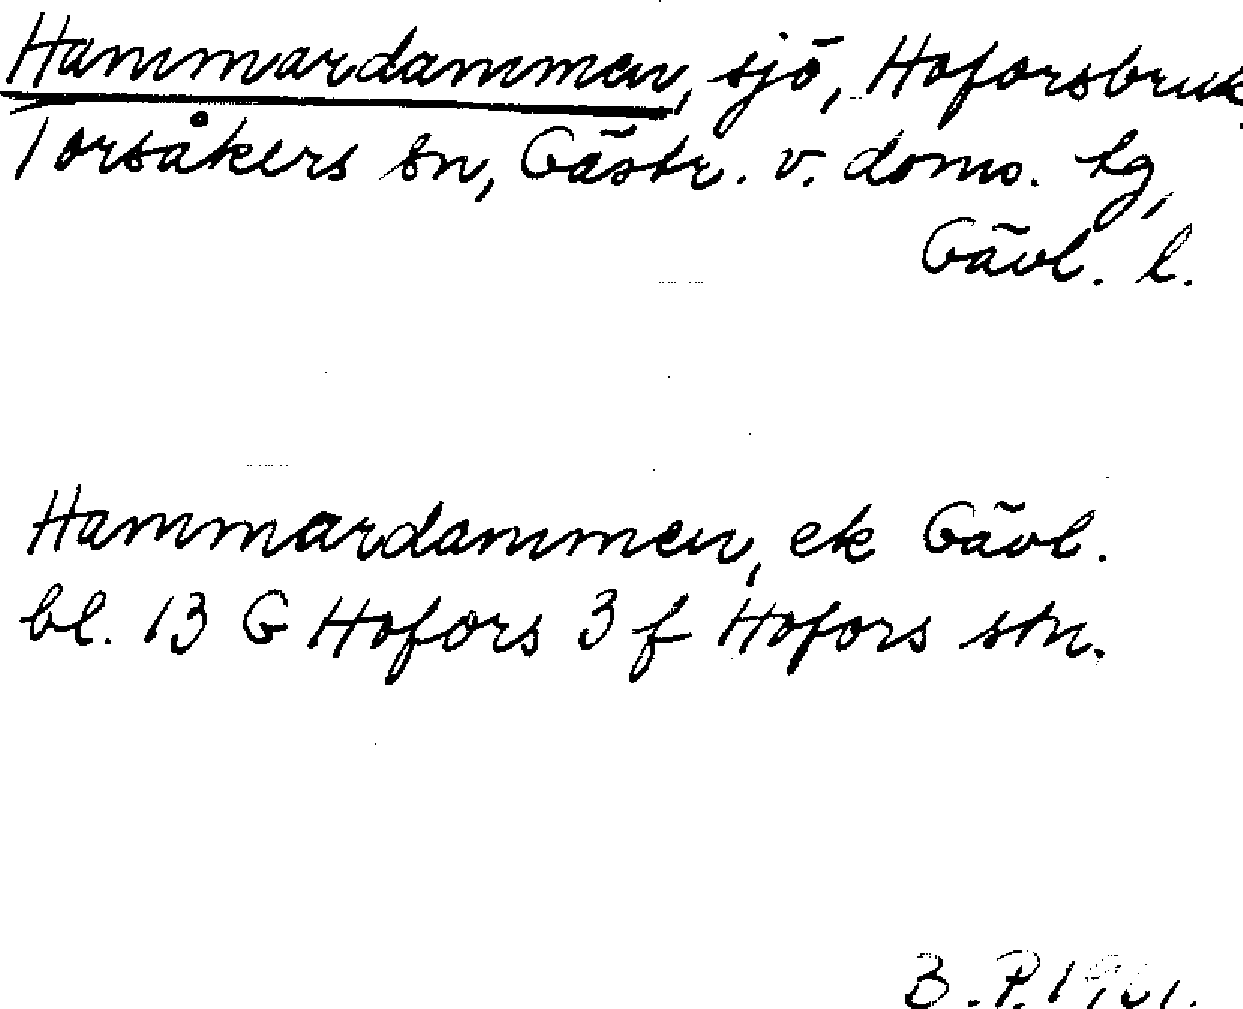 Hammardammen, sjö, Hoforsbruk
Torsåkers sn, Gästr. v. doms. lg,
Gävl. l.
Hammardammen, ek Gävl.
bl. 13 G Hofors 3 f Hofors stn.
B. P. 1961.